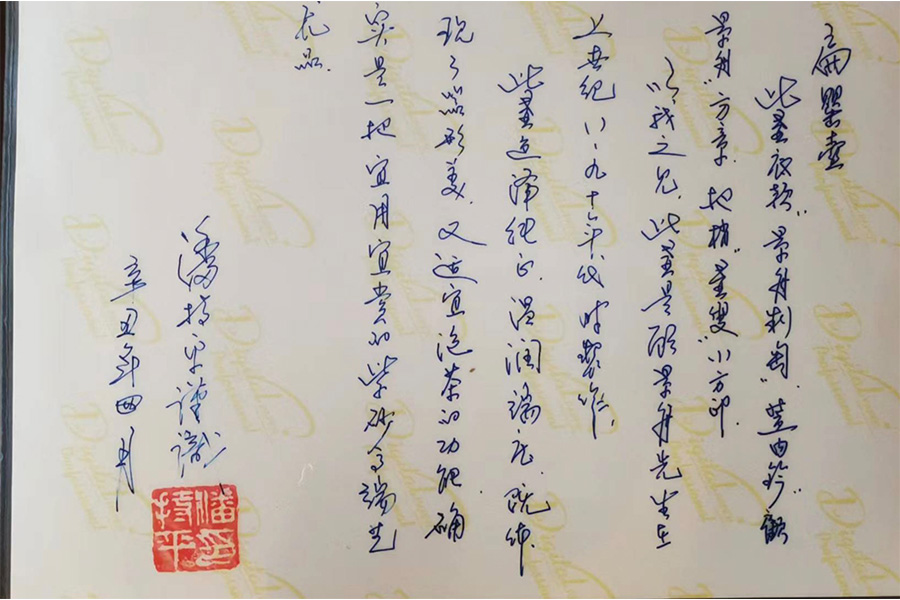 扁罂壶
此壶底款"景舟制陶",盖内钤"顾
景舟"方章.把梢"壶叟"小方印.
以我之见,此壶是顾景舟先生在
上世纪八、九十年代时製作.
此壶造 纯正.温润端庄.既体
现了器形美.又适宜泡茶的功能.确
实是一把宜用宜赏的紫砂高端艺
术品.
潘持平谨識
辛丑年四月
潘持平印